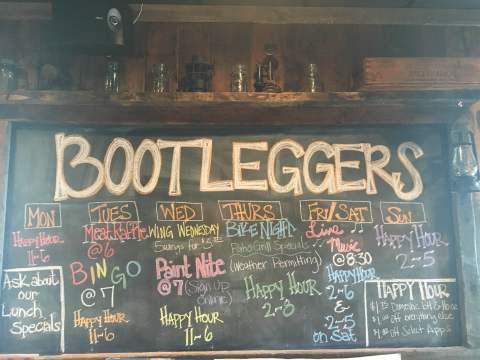 BOOTLEGGERS
MON
HAPPY HOUR
11-6
Ask about
our
Lunch
Specials
TUES
Meat Raffle
@6
BINGO
@7
HAPPY
HOUR
11-6
WED
WING WEDNESDAY
PAINT NITE
@7 (Sign UP
Online)
HAPPY HOUR
11-6
THURS
BIKE NIGHT
Specials
(Weather Permitting)
HAPPY HOUR
2-8
FRI/SAT
Live
Music
@8:30
HAPPY HOUR
2-6
&
2-5
on Sat
SUN
HAPPY HOUR
2-5
HAPPY HOUR
off everything else
off Select Apps